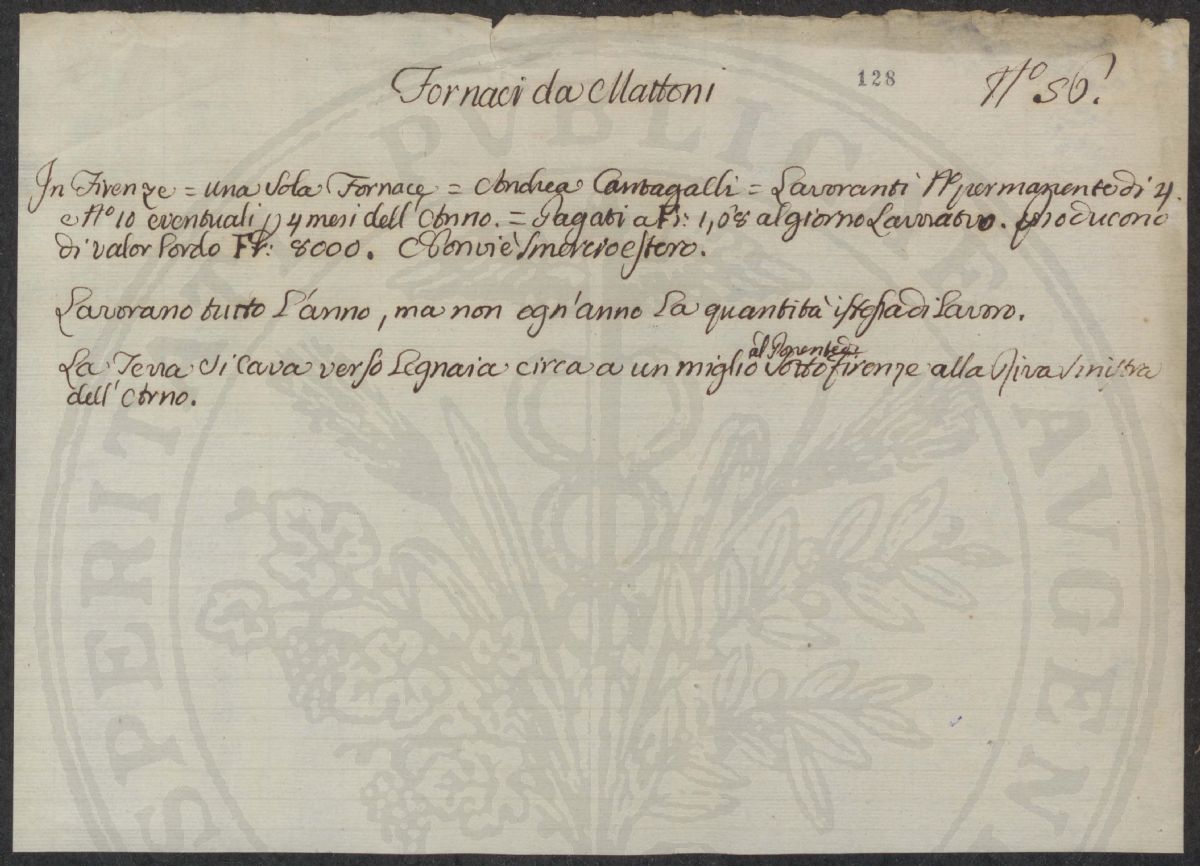 Fornaci da Mattoni 128 Nº 36.
In Firenze = una sola Fornace = Andrea Cantagalli = Lavoranti Nº permanente di 4.
e Nº 10 eventuali p 4 mesi dell'Anno. = Pagati a Fr: 1,68 al giorno Lavorativo. Producono
di valor lordo Fr: 8000. Non vi è smercio estero.
Lavorano tutto l'anno, ma non ogn'anno la quantità istessa di Lavoro.
al Ponente di
La Terra si cava verso Legnaia circa a un miglio sotto Firenze alla Riva sinistra
dell'Arno.